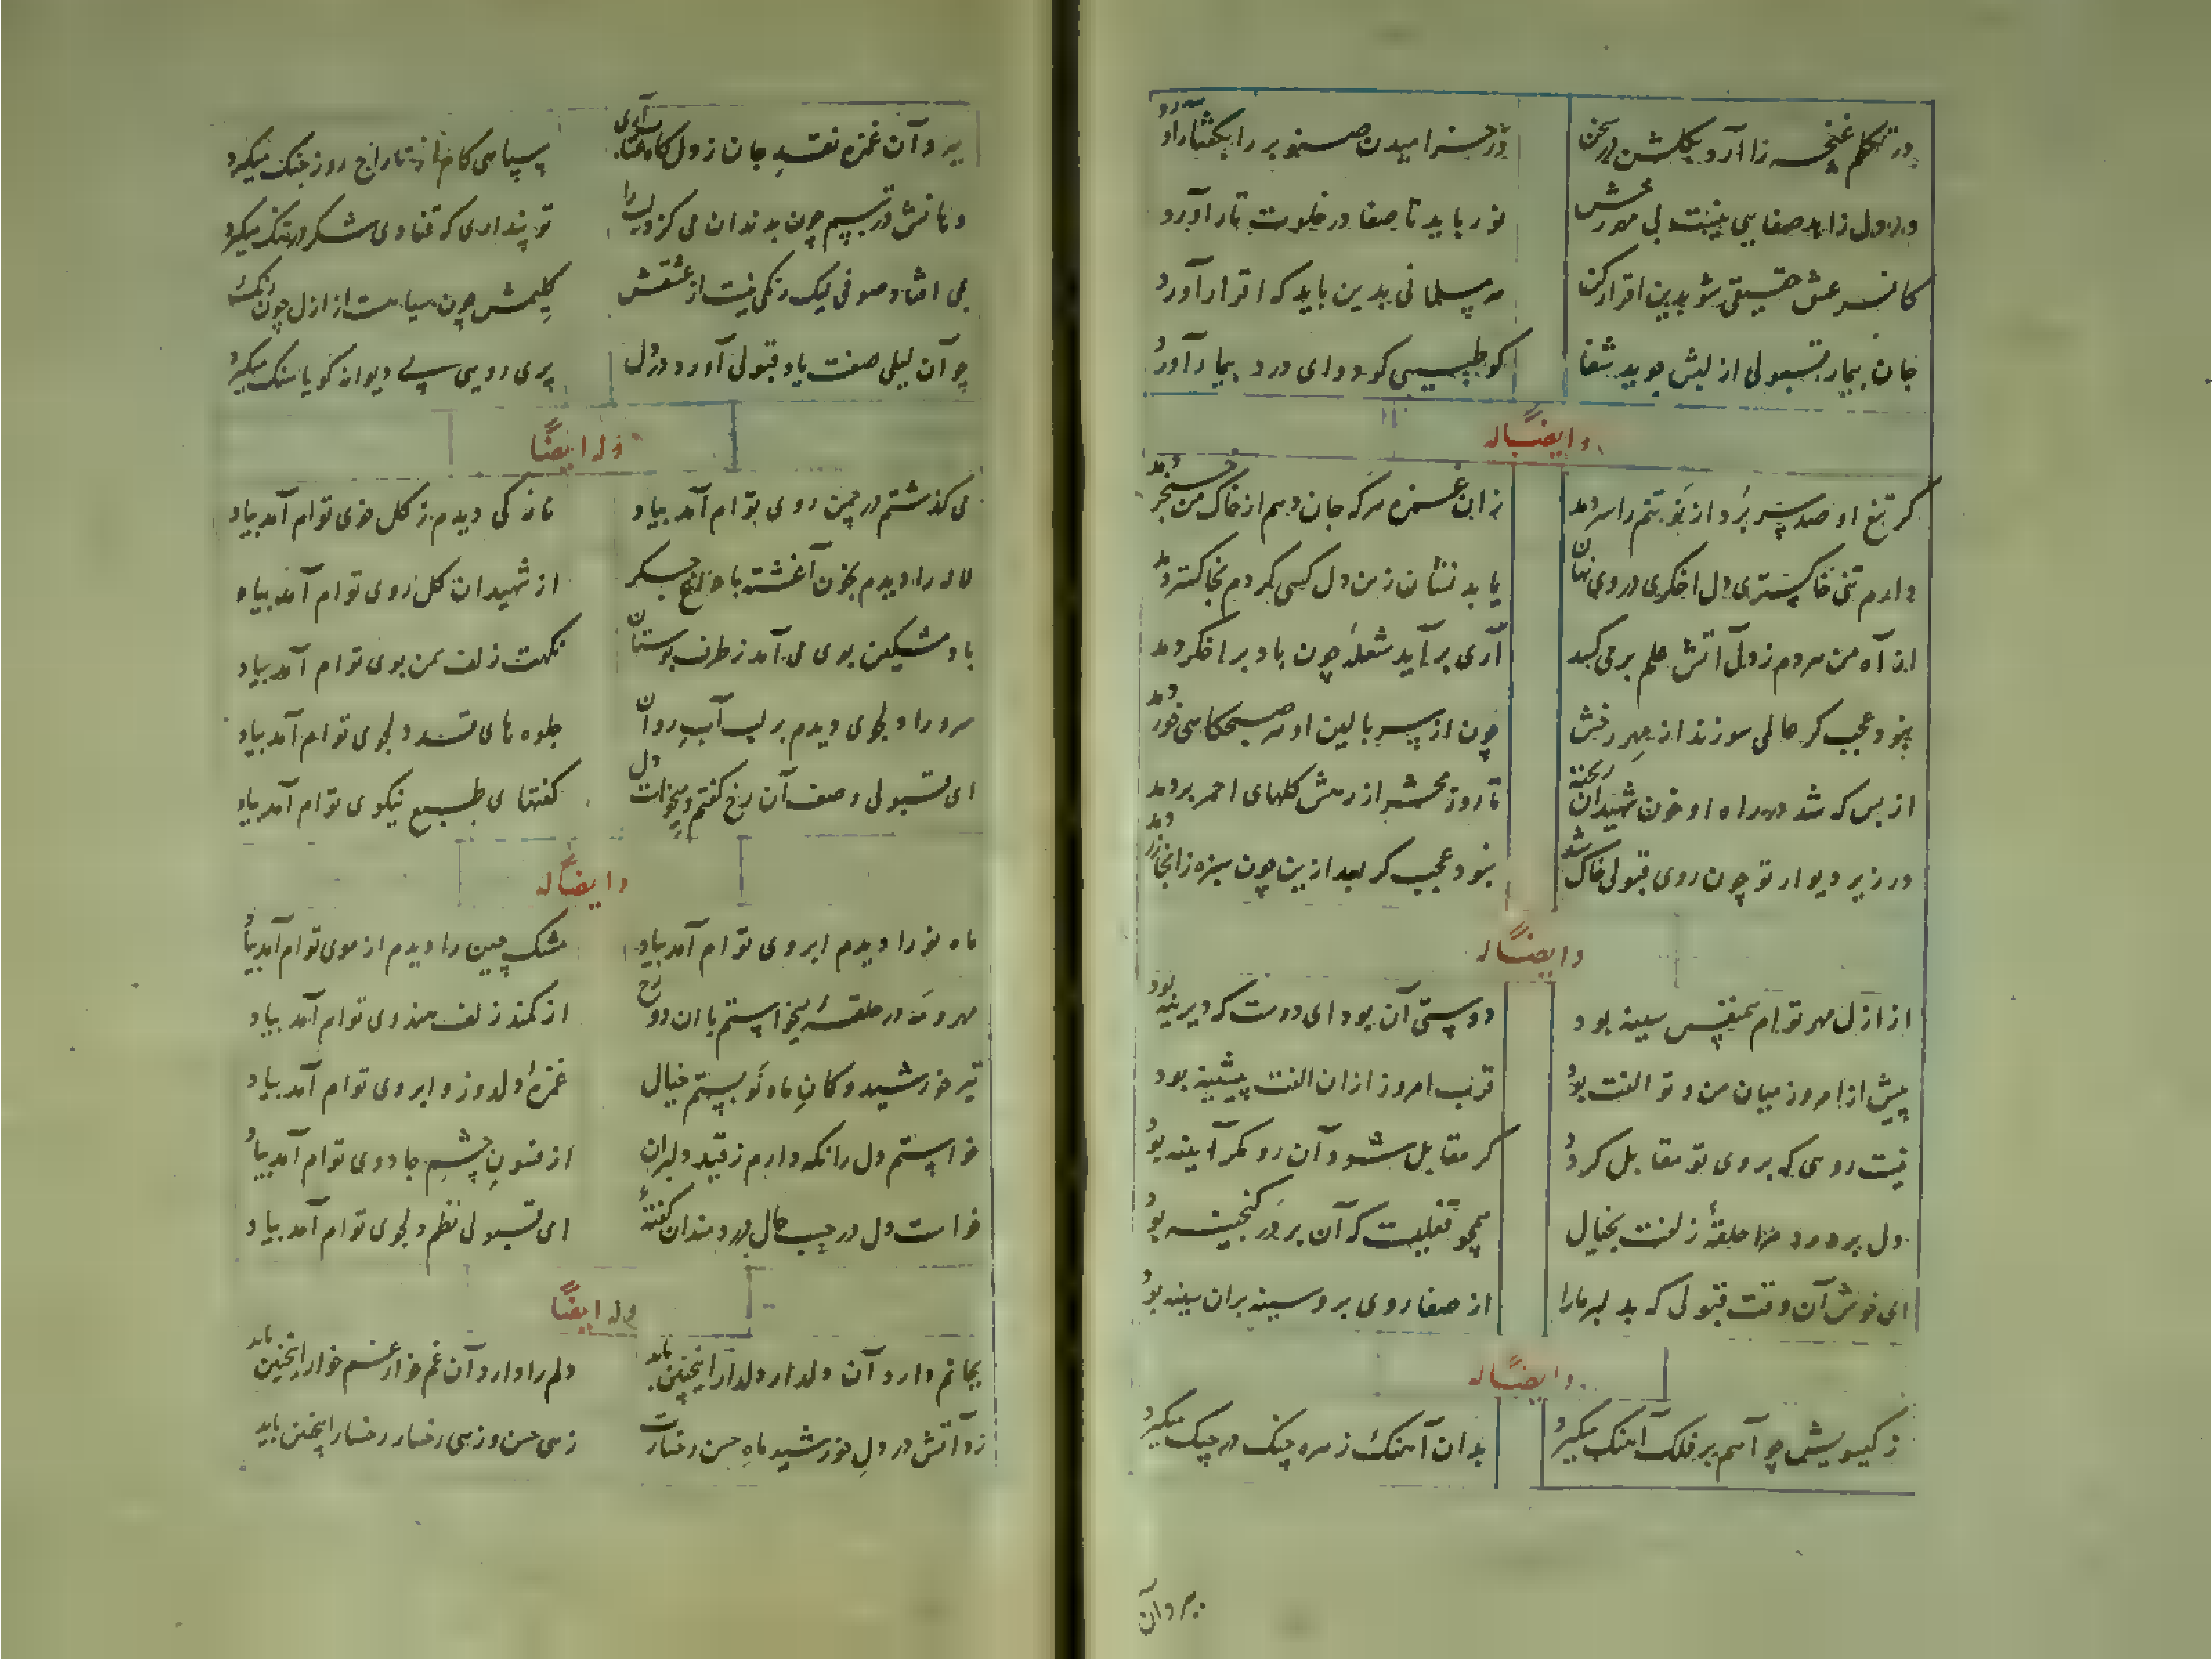 در تکلم غنچه را آرد بگلشن در سخن در خرامیدن صنوبر را بگفتار آورد
در دل زاهد صفایی نیست بی مهر رخش نور باید تا صفا در خلوت تار آورد
کافر عشق حقیقی شو بدین اقرار کن هر مسلمانی بدین باید که اقرار آورد
جان بیمار قبولی از لبش جوید شفا کو طبیبی کو دوای درد بیمار آورد
وایضاً له
گر تیغ او صد سر برد از نو تنم را سر دمد زان غمزه هر گه جان دهم از خاک من خنجر دمد
دارم تنی خاکستری دل اخگری در وی نهان یابد نشان زین دل کسی گر دم بخاکستر دمد
از آه من هر دم ز دل آتش علم بر می کشد آری بر آید شعله چون باد بر اخگر دمد
نبود عجب گر عالمی سوزند از مهر رخش چون از سر بالین او هر صبحگاهی خور دمد
از بس که شد در راه او خون شهیدان ریخته تا روز محشر از رهش گلهای احمر بر دمد
در زیر دیوار تو چون روی قبولی خاک شد نبود عجب گر بعد ازین چون سبزه زانجا زر دمد
وایضاً له
از ازل مهر توام همنفس سینه بود دوستی آن بود ای دوست که دیرینه بود
پیش از امروز میان من و تو الفت بود قرب امروز ازان الفت پیشینه بود
نیست رویی که بروی تو مقابل گردد گر مقابل شود آن رو مگر آیینه بود
دل پر درد مرا حلقهٔ زلفت بخیال همچو قفلیست که آن بر در گنجینه بود
ای خوش آن وقت قبولی که بدلبر ما را از صفا روی برو سینه بران سینه بود
وایضاً له
ز گیسویش چو آهم بر فلک آهنگ میگیرد بدان آهنگ زهره چنگ در چنگ میگیرد
برد آن
برد آن غمزه نقد جان ز دل گاه آری سپاهی کام از تاراج روز جنگ میگیرد
دهانش در تبسم چون بدندان می گزد لب را تو پنداری که قنادی شکر در تنگ میگیرد
می افتاد صوفی لیک رنگی نیست از عشقش گلیمش چون سیاهست از ازل چون رنگ
چو آن لیلی صفت یاد قبولی آورد در دل پری رویی پی دیوانه گویا سنگ میگیرد
وله ایضاً
می گذشتم در چمن روی توام آمد بیاد تازگی دیدم ز گل خوی توام آمد بیاد
لاله را دیدم بخون آغشته با داغ جگر از شهیدان گل روی توام آمد بیاد
باد مشکین بوی می آمد ز طرف بوستان نکهت زلف سمن بوی توام آمد بیاد
سرو را دلجوی دیدم بر لب آب روان جلوه های قد دلجوی توام آمد بیاد
ای قبولی وصف آن رخ گفتم و میخواست دل گفتهای طبع نیکوی توام آمد بیاد
وایضاً له
ماه نو را دیدم ابروی توام آمد بیاد مشک چین را دیدم از موی توام آمد بیاد
مهر و مه در حلقه میخواستم با ان دو رخ از کمند زلف هندوی توام آمد بیاد
تیر خورشید و کمان ماه نو بستم خیال غمزهٔ دلدوز و ابروی توام آمد بیاد
خواستم دل را نگه دارم ز قید دلبران از فسون چشم جادوی توام آمد بیاد
خواست دل در حسب حال دردمندان گفتهٔ ای قبولی نظم دلجوی توام آمد بیاد
وله ایضاً
بجانم دارد آن دلدار دلدار اینچنین باید دلم را دارد آن غم خوار غم خوار اینچنین باید
زد آتش در دل خورشید ماه حسن رخسارت زهی حسن و زهی رخسار رخسار اینچنین باید